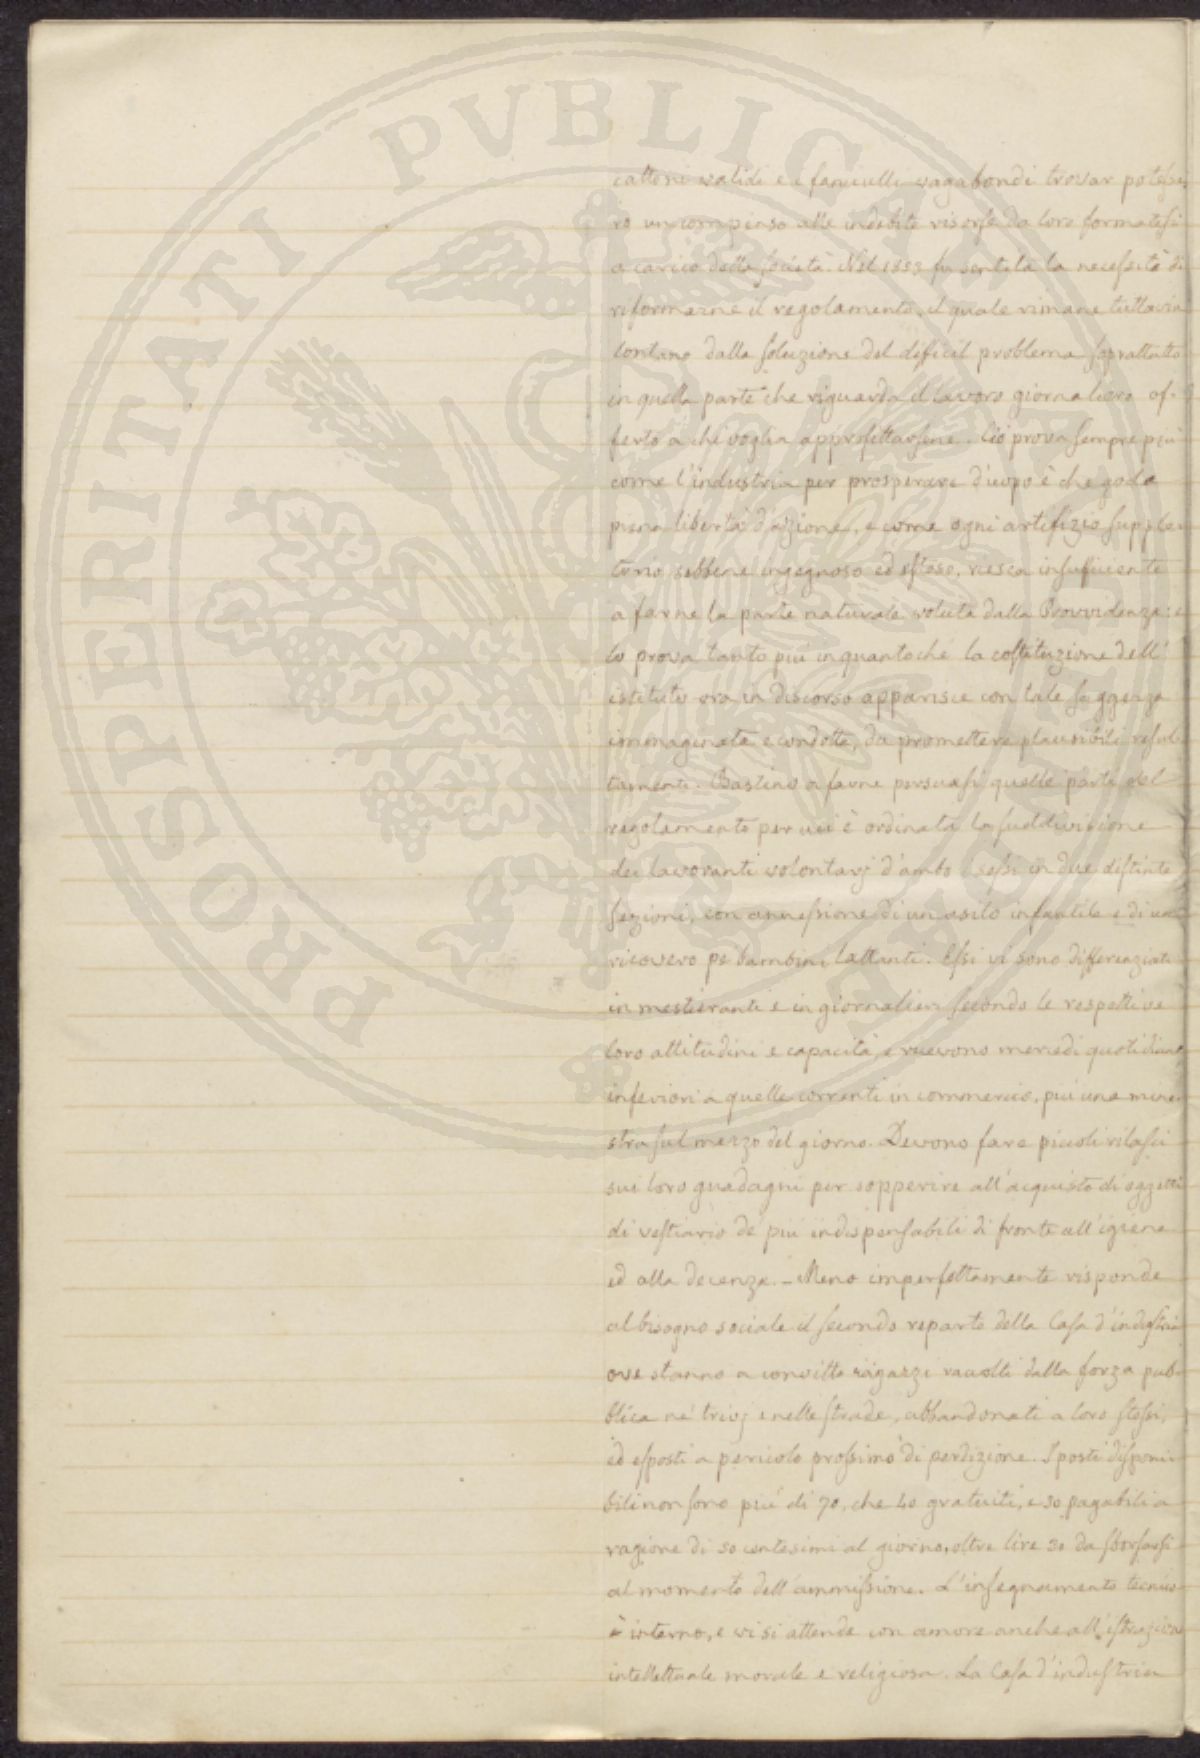 PROSPERITATI PVBLICAE
cattoni validi e i fanciulli vagabondi trovar potesse
ro un compenso alle indebite risorse da loro formatesi
a carico della società. Nel 1853 fu sentita la necessità di
riformarne il regolamento, il quale rimane tuttavia
lontano dalla soluzione del dificil problema soprattutto
in quella parte che riguarda il lavoro giornaliero of-
ferto a chi voglia approfittarsene. Ciò prova sempre più
come l'industria per prosperare d'uopo è che goda
piena libertà d'azione, e come ogni artifizio supple-
torio sebbene ingegnoso ed esteso, riesca insufficente
a farne la parte naturale voluta dalla Provvidenza: e
lo prova tanto più inquantoché la costituzione dell'
istituto ora in discorso apparisce con tale saggezza
immaginata e condotta, da promettere plausibili resul-
tamenti. Bastino a farne persuasi quelle parti del
regolamento per cui è ordinata la suddivisione
dei lavoranti volontarj d'ambo i sessi in due distinte
sezioni, con annessione di un asilo infantile e di un
ricovero pe' bambini lattanti. Essi vi sono differenziati
in mestieranti e in giornalieri secondo le respettive
loro attitudini e capacità, e ricevono mercedi quotidiane
inferiori a quelle correnti in commercio, più una mine-
stra sul mezzo del giorno. Devono fare piccoli rilasci
sui loro guadagni per sopperire all'acquisto di oggetti
di vestiario de' più indispensabili di fronte all'igiene
ed alla decenza. - Meno imperfettamente risponde
al bisogno sociale il secondo reparto della Casa d'industria
ove stanno a convitto ragazzi raccolti dalla forza pub-
blica ne' trivj e nelle strade, abbandonati a loro stessi,
ed esposti a pericolo prossimo di perdizione. I posti disponi-
bili non sono più di 70, che 40 gratuiti, e 30 pagabili a
ragione di 50 centesimi al giorno, oltre lire 30 da sborsarsi
al momento dell'ammissione. L'insegnamento tecnico
è interno, e vi si attende con amore anche all'istruzione
intellettuale morale e religiosa. La Casa d'industria